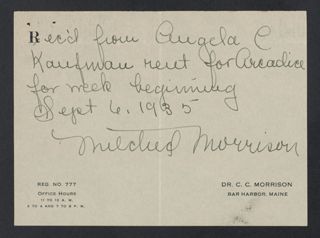 Rec'd from Angela C
Kaufman rent for Arcadice
for week beginning
Sept 6, 1935
Mildred Morrison
REG. NO. 777
OFFICE HOURS
11 TO 12 A. M.
2 TO 4 AND 7 TO 8 P. M.
DR. C. C. MORRISON
BAR HARBOR, MAINE